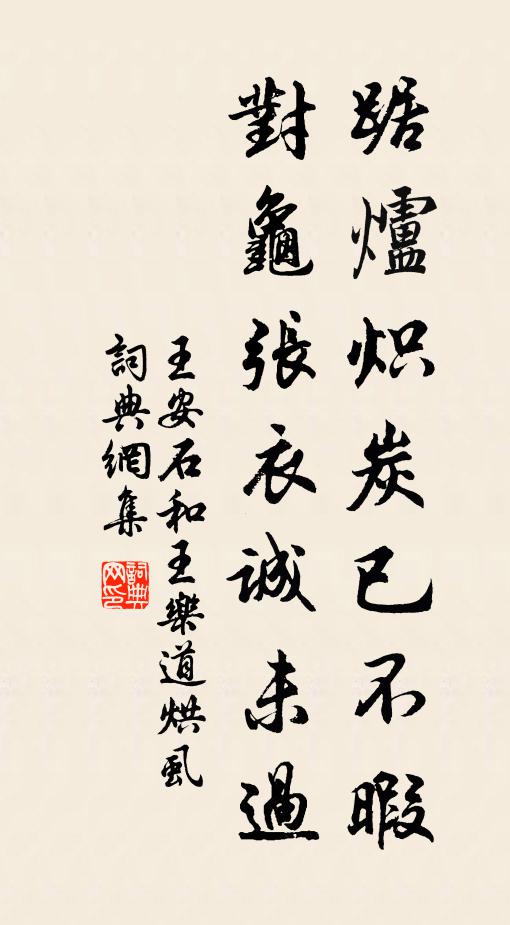 踞爐炽炭已不暇
對龜張衣誠未過
王安石和王樂道烘虱
詞典網集
詞典网印